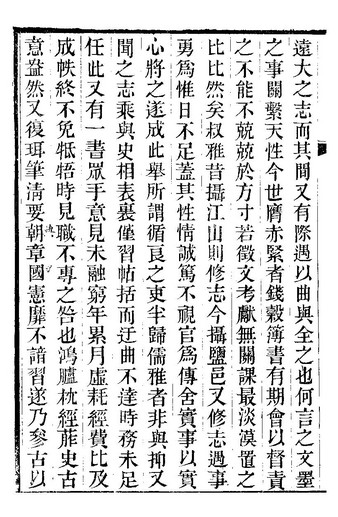 遠大之志而其間又有際遇以曲與全之也何言之文墨
之事關繫天性今世膺赤緊者錢穀簿書有期會以督責
之不能不兢兢於方寸若徵文考獻無關課最淡漠置之
比比然矣叔雅昔攝江山則修志今攝鹽邑又修志遇事
勇爲惟日不足蓋其性情誠篤不視官爲傳舍實事以實
心將之遂成此舉所謂循良之吏半歸儒雅者非與抑又
聞之志乘與史相表裏僅習帖括而迂曲不達時務未足
任此又有一書眾手意見未融窮年累月虛耗經費比及
成帙終不免牴牾時見職不專之咎也鴻臚枕經葄史古
意盎然又復珥筆淸要朝章國憲靡不諳習遂乃參古以